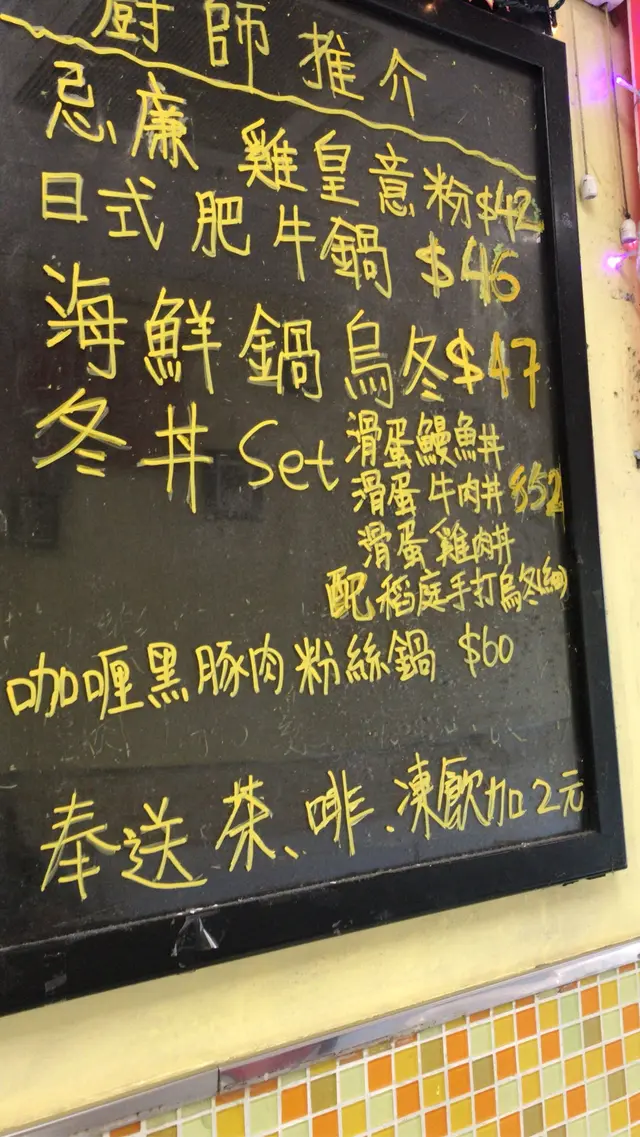 廚師推介
忌廉 雞皇意粉$42
日式肥牛鍋 $46
海鮮鍋烏冬$47
冬丼 Set 滑蛋鰻魚丼
滑蛋牛肉丼 $52
滑蛋雞肉丼
配稻庭手打烏冬(細)
咖喱黑豚肉粉絲鍋 $60
奉送茶、啡.凍飲加2元